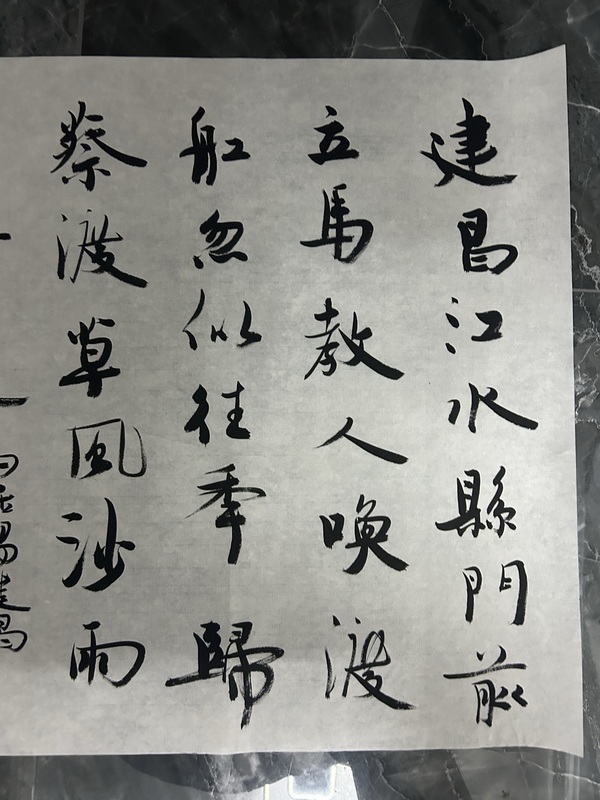 建昌江水縣門前
立馬教人喚渡
舡忽似往季歸
蔡渡草風沙雨
白居易建昌